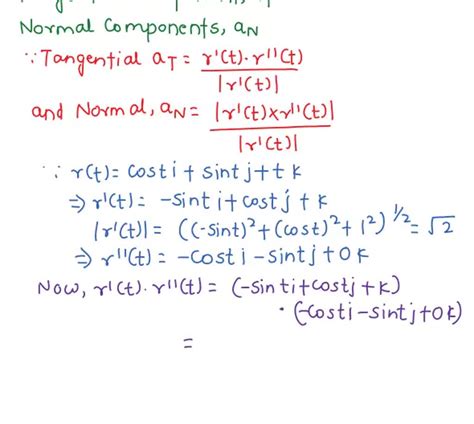 Normal Components, aN
∵ Tangential aT = r'(t)·r''(t) / |r'(t)|
and Normal, aN = |r'(t)×r''(t)| / |r'(t)|
∵ r(t) = cost i + sint j + t k
⇒ r'(t) = -sint i + cost j + k
|r'(t)| = ((-sint)² + (cost)² + 1²)^1/2 = √2
⇒ r''(t) = -cost i - sint j + 0 k
Now, r'(t)·r''(t) = (-sint i + cost j + k)
· (-cost i - sint j + 0 k)
=